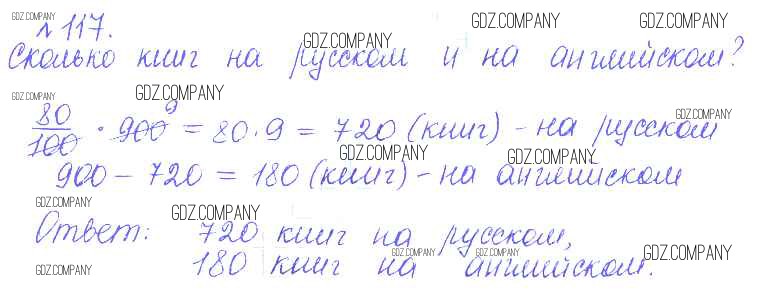 GDZ.COMPANY GDZ.COMPANY GDZ.COMPANY
№ 117.
GDZ.COMPANY
Сколько книг на русском и на английском?
GDZ.COMPANY GDZ.COMPANY
80/100 · 900 9 = 80·9 = 720 (книг) - на русском
GDZ.COMPANY
GDZ.COMPANY GDZ.COMPANY
900 - 720 = 180 (книг) - на английском
GDZ.COMPANY GDZ.COMPANY
Ответ: 720 книг на русском,
GDZ.COMPANY GDZ.COMPANY GDZ.COMPANY
180 книг на английском.
GDZ.COMPANY